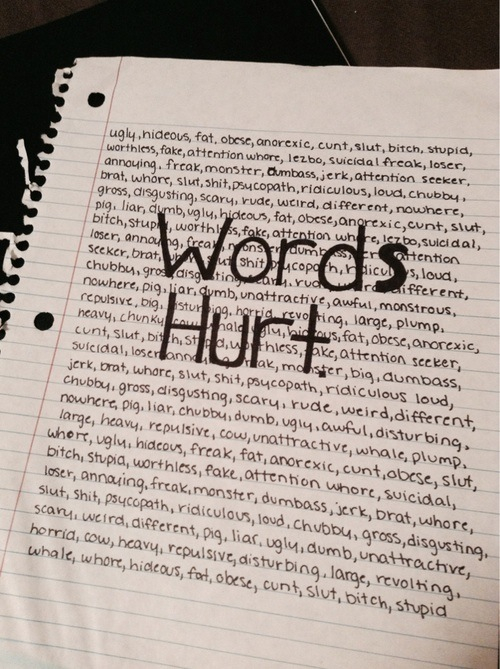 ugly, hideous, fat, obese, anorexic, cunt, slut, bitch, stupid,
worthless, fake, attention whore, lezbo, suicidal freak, loser,
annoying, freak, monster, dumbass, jerk, attention seeker,
brat, whore, slut, shit, psycopath, ridiculous, loud, chubby,
gross, disgusting, scary, rude, weird, different, nowhere,
pig, liar, dumb, ugly, hideous, fat, obese, anorexic, cunt, slut,
bitch, stupid, worthless, fake, attention whore, lezbo, suicidal,
loser, annoying, freak, monster, dumbass, jerk, attention
Words
seeker, brat, slut, shit, psycopath, ridiculous, loud,
chubby, gross, disgusting, scary, rude, weird, different,
nowhere, pig, liar, dumb, unattractive, awful, monstrous,
repulsive, big, disturbing, horrid, revolting, large, plump,
Hurt.
heavy, chunky, ugly, hideous, fat, obese, anorexic,
cunt, slut, bitch, stupid, worthless, fake, attention seeker,
suicidal, loser, annoying, freak, monster, big, dumbass,
jerk, brat, whore, slut, shit, psycopath, ridiculous loud,
chubby, gross, disgusting, scary, rude, weird, different,
nowhere, pig, liar, chubby, dumb, ugly, awful, disturbing,
large, heavy, repulsive, cow, unattractive, whale, plump,
whore, ugly, hideous, freak, fat, anorexic, cunt, obese, slut,
bitch, stupid, worthless, fake, attention whore, suicidal,
loser, annoying, freak, monster, dumbass, jerk, brat, whore,
slut, shit, psycopath, ridiculous, loud, chubby, gross, disgusting,
scary, weird, different, pig, liar, ugly, dumb, unattractive,
horrid, cow, heavy, repulsive, disturbing, large, revolting,
whale, whore, hideous, fat, obese, cunt, slut, bitch, stupid